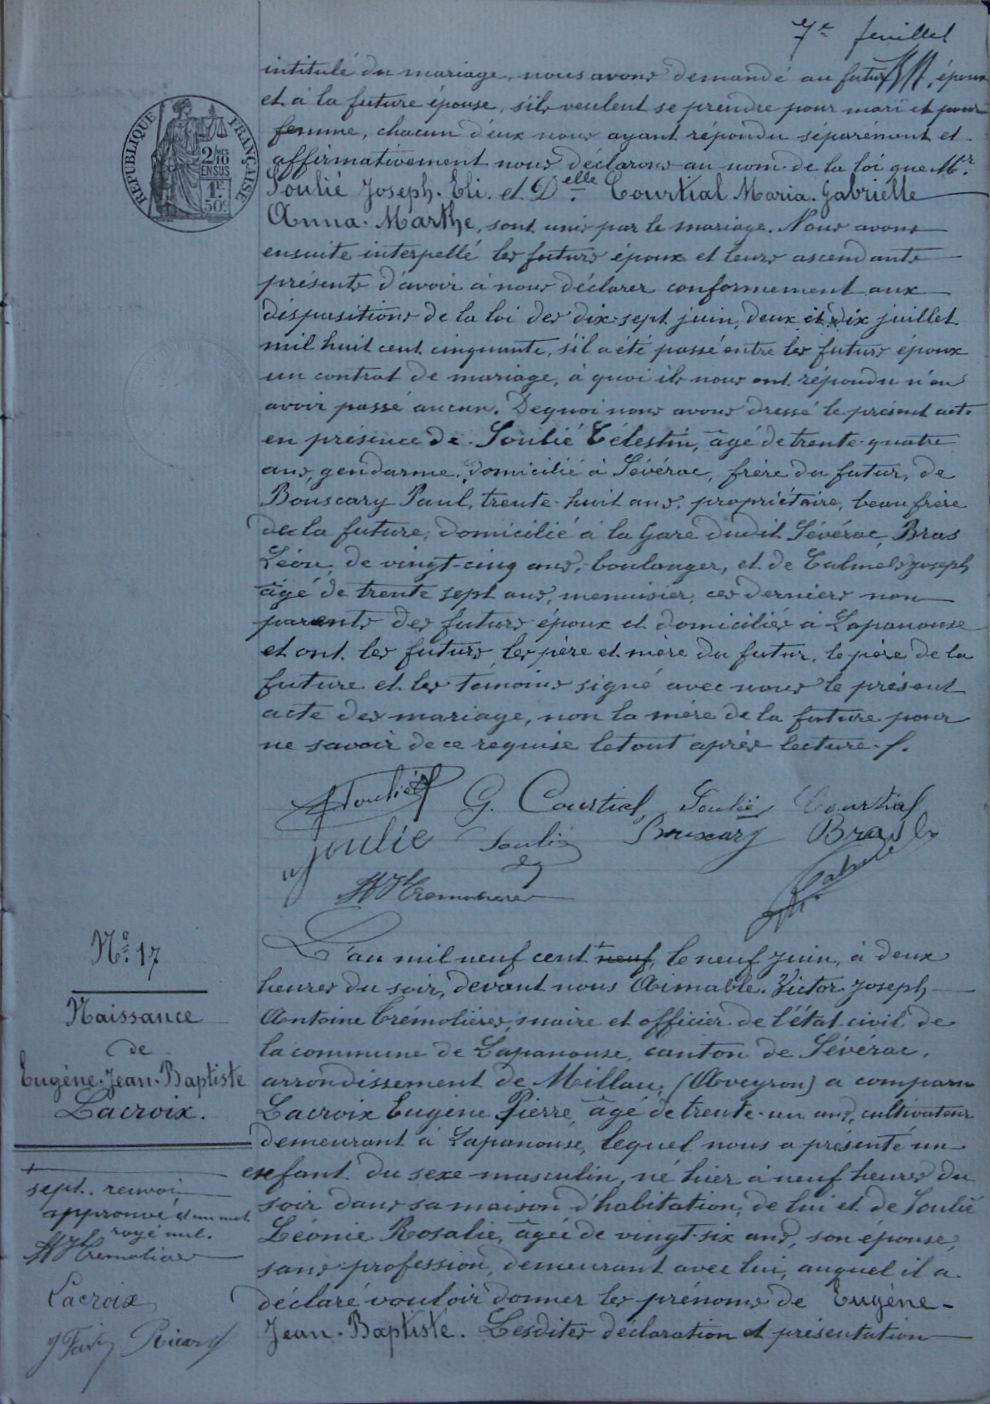 7e feuillet
intitulé du mariage, nous avons demandé au futur époux
et à la future épouse, s'ils veulent se prendre pour mari et pour
femme, chacun d'eux nous ayant répondu séparément et
affirmativement nous déclarons au nom de la loi que Mr.
Soulié Joseph. Eli. et Delle Courtial Maria. Gabrielle
Anna. Marthe, sont unis par le mariage. Nous avons
ensuite interpellé les futurs époux et leurs ascendants
présents d'avoir à nous déclarer conformement aux
dispositions de la loi des dix-sept juin, deux et dix juillet
mil huit cent cinquante, s'il a été passé entre les futurs époux
un contrat de mariage, à quoi ils nous ont répondu n'en
avoir passé aucun. De quoi nous avons dressé le présent acte
en présence de Soulié Célestin, âgé de trente-quatre
ans, gendarme, domicilié à Sévérac, frère du futur, de
Bouscary Paul, trente-huit ans, propriétaire, beau frère
de la future, domicilié à la Gare dudit Sévérac, Bras
Léon, de vingt-cinq ans, boulanger, et de Calmels Joseph
âgé de trente sept ans, menuisier, ces derniers non
parents des futurs époux et domiciliés à Lapanouse
et ont les futurs, les père et mère du futur, le père de la
future et les témoins signé avec nous le présent
acte des mariage, non la mère de la future pour
ne savoir de ce requise le tout après lecture.
Soulié G. Courtial Soulié Courtial
Soulié Soulié Bouscary Bras L
Trémolières Calmels
RÉPUBLIQUE FRANÇAISE
2/10 EN SUS
1F. 50c
No. 17
Naissance
de
Eugène. Jean. Baptiste
Lacroix.
L'an mil neuf cent neuf, le neuf juin, à deux
heures du soir, devant nous Aimable. Victor Joseph
Antoine Trémolières, maire et officier de l'état civil de
la commune de Lapanouse, canton de Sévérac,
arrondissement de Millau, (Aveyron) a comparu
Lacroix Eugène Pierre âgé de trente-un ans, cultivateur
demeurant à Lapanouse, lequel nous a présenté un
enfant du sexe masculin, né hier à neuf heures du
soir dans sa maison d'habitation, de lui et de Soulié
Léonie Rosalie, âgée de vingt-six ans, son épouse,
sans profession, demeurant avec lui, auquel il a
déclaré vouloir donner les prénoms de Eugène-
Jean-Baptiste. Lesdites déclaration et présentation
sept. renvoi
approuvé et un mot
rayé nul.
Trémolières
Lacroix
Ricard